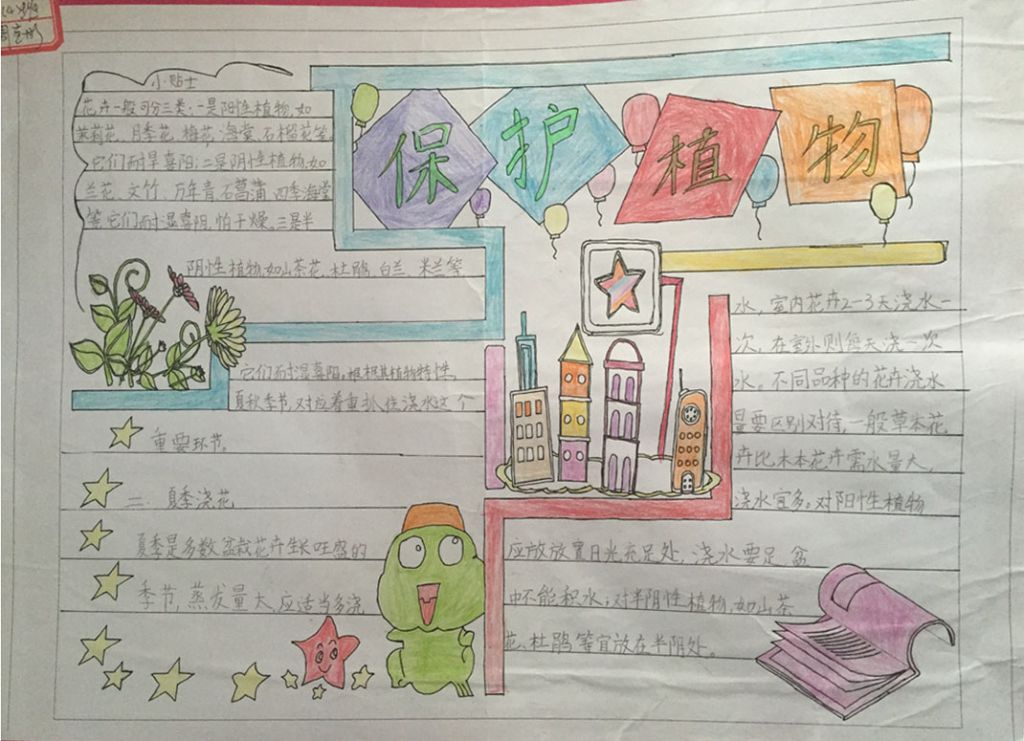 保护植物
小贴士
花卉一般可分三类:一是阳性植物,如
茉莉花、月季花、梅花、海棠、石榴花等
它们耐旱喜阳;二是阴性植物,如
兰花、文竹、万年青、石菖蒲、四季海棠
等它们耐湿喜阴,怕干燥。三是半
阴性植物,如山茶花、杜鹃、白兰、米兰等
它们耐湿喜阳。根据其植物特性,
夏秋季节,对应着重抓住浇水这个
重要环节。
二、夏季浇花
夏季是多数盆栽花卉生长旺盛的
季节,蒸发量大,应适当多浇
水,室内花卉2-3天浇水一
次,在室外则每天浇一次
水。不同品种的花卉浇水
量要区别对待,一般草本花
卉比木本花卉需水量大,
浇水宜多。对阳性植物
应放放置日光充足处,浇水要足,盆
中不能积水;对半阴性植物,如山茶
花、杜鹃等宜放在半阴处。